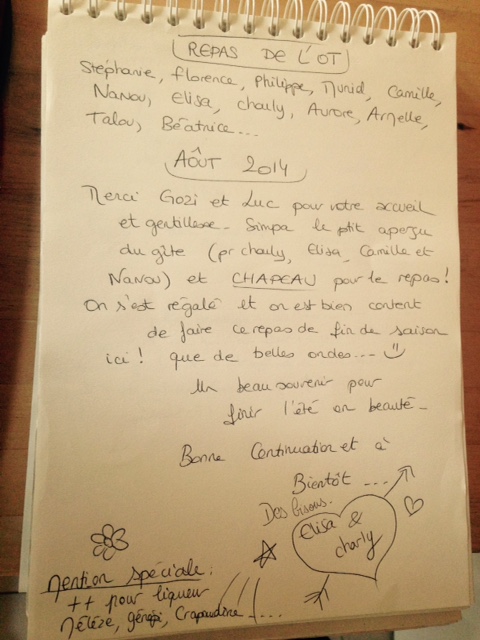 REPAS DE L'OT
Stéphanie, Florence, Philippe, Muriel, Camille,
Nanou, Elisa, charly, Aurore, Armelle,
Talou, Béatrice...
AOÛT 2014
Merci Gozi et Luc pour votre accueil
et gentillesse. Simpa le ptit aperçu
du gîte (pr charly, Elisa, Camille et
Nanou) et CHAPEAU pour le repas!
On s'est régalé et on est bien content
de faire ce repas de fin de saison
ici! que de belles ondes...
Un beau souvenir pour
finir l'été en beauté-
Bonne Continuation et à
Bientôt ...
Des bisous.
elisa &
charly
Mention spéciale:
++ pour liqueur
Mélèze, génépi, Crapaudine!!...